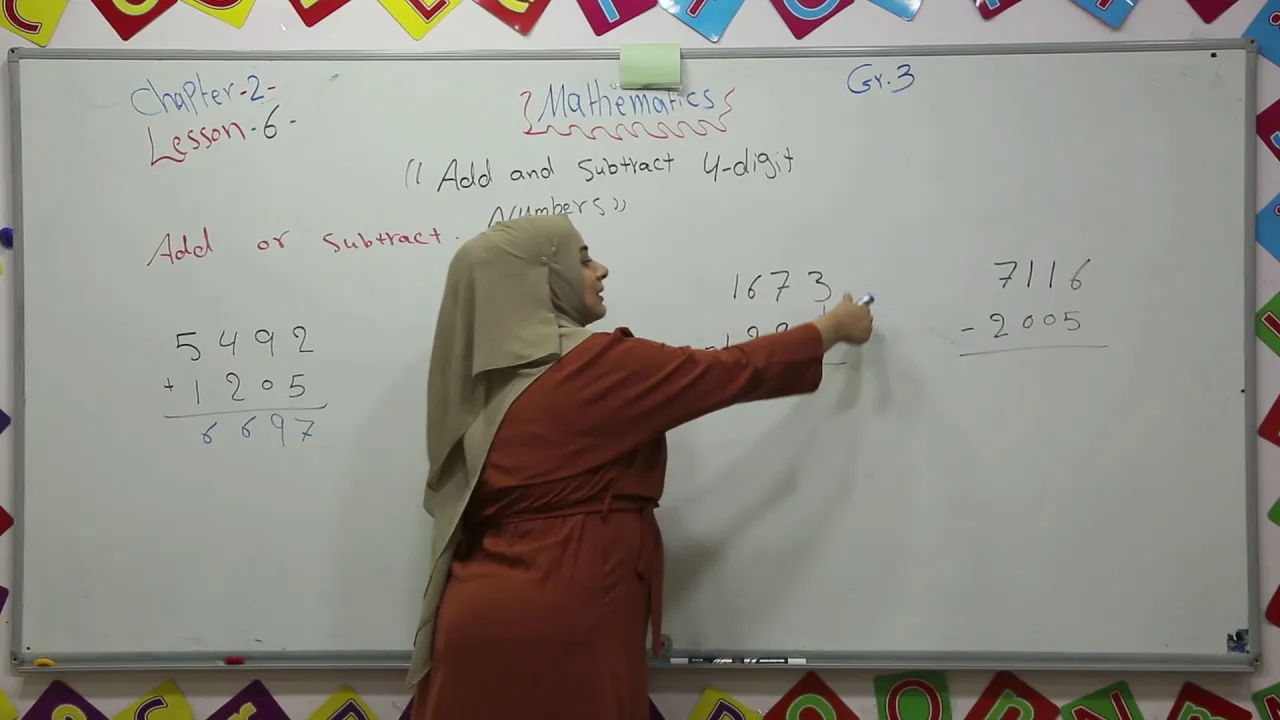 Chapter-2-
Mathematics
Gr.3
Lesson-6-
(( Add and Subtract 4-digit
Numbers))
Add or Subtract.
5492
+ 1205
6697
1673
7116
- 2005